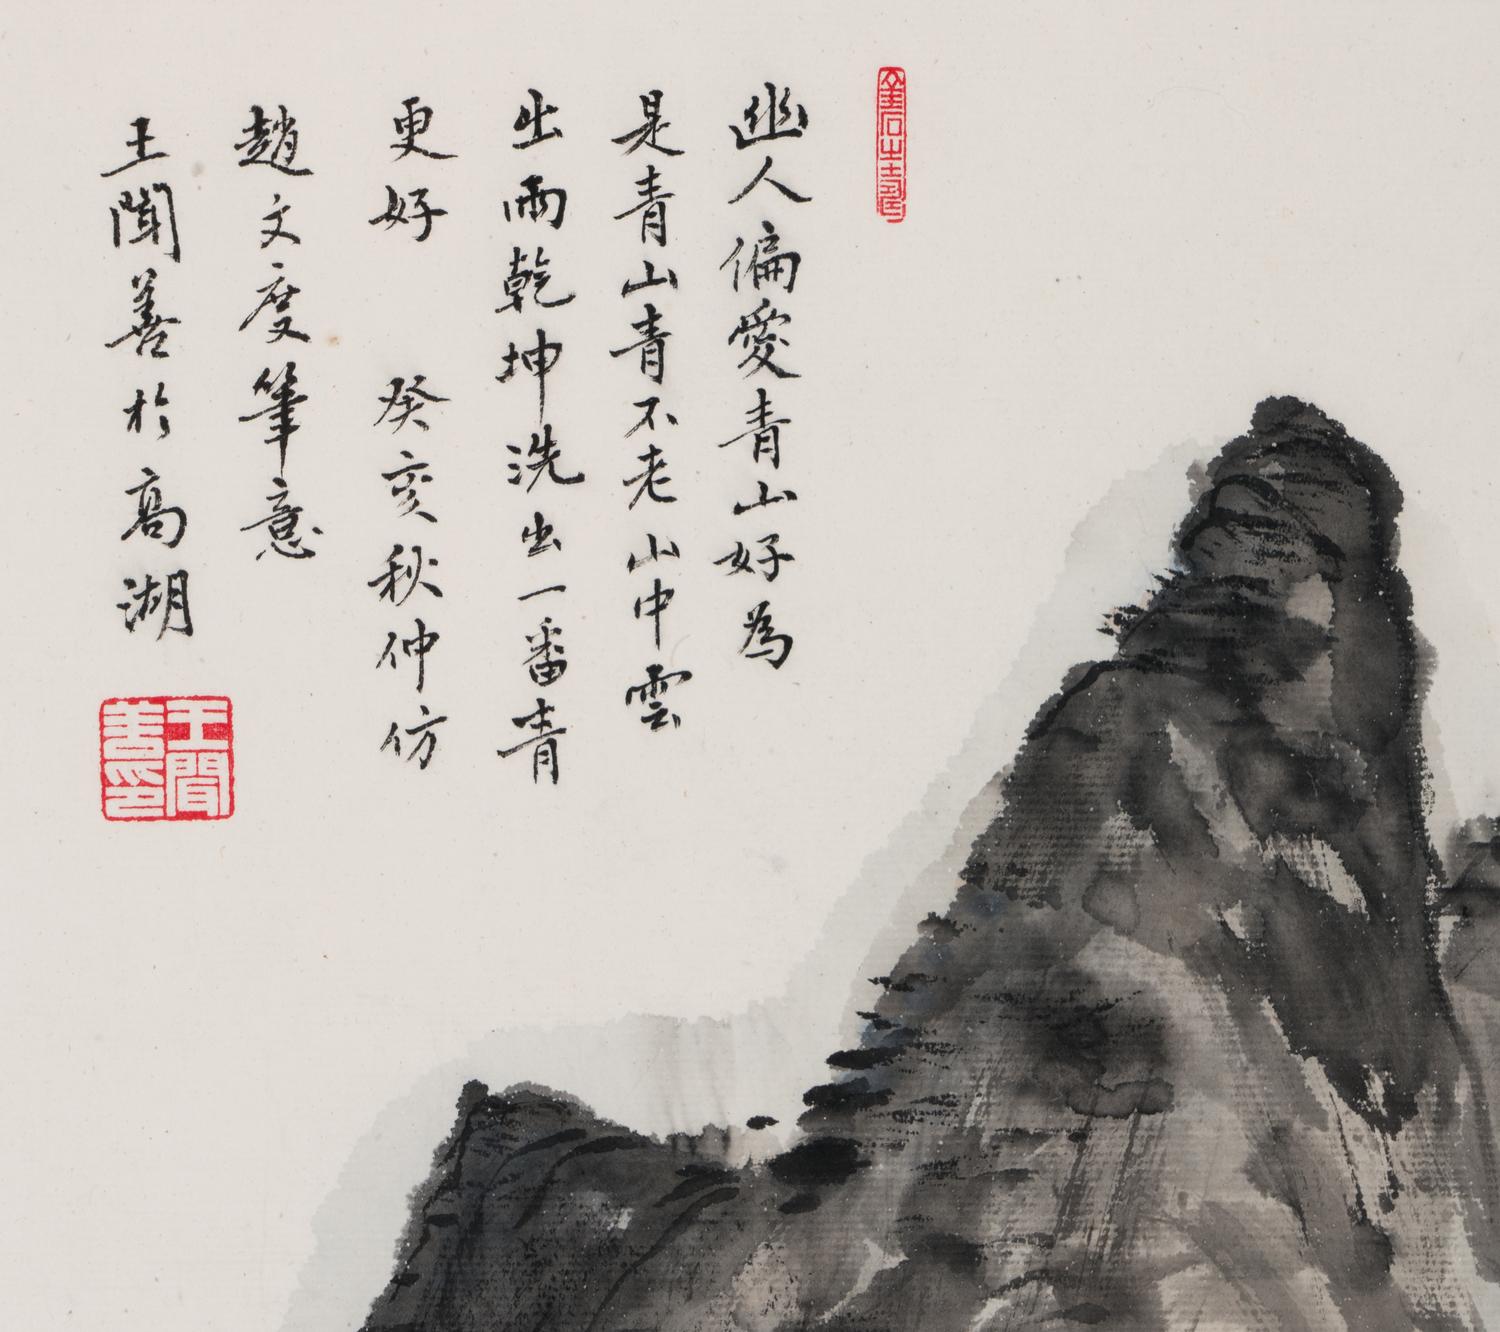 幽人偏愛青山好為
是青山青不老山中雲
出雨乾坤洗出一番青
更好 癸亥秋仲仿
趙文度筆意
王聞善於高湖
王聞善印